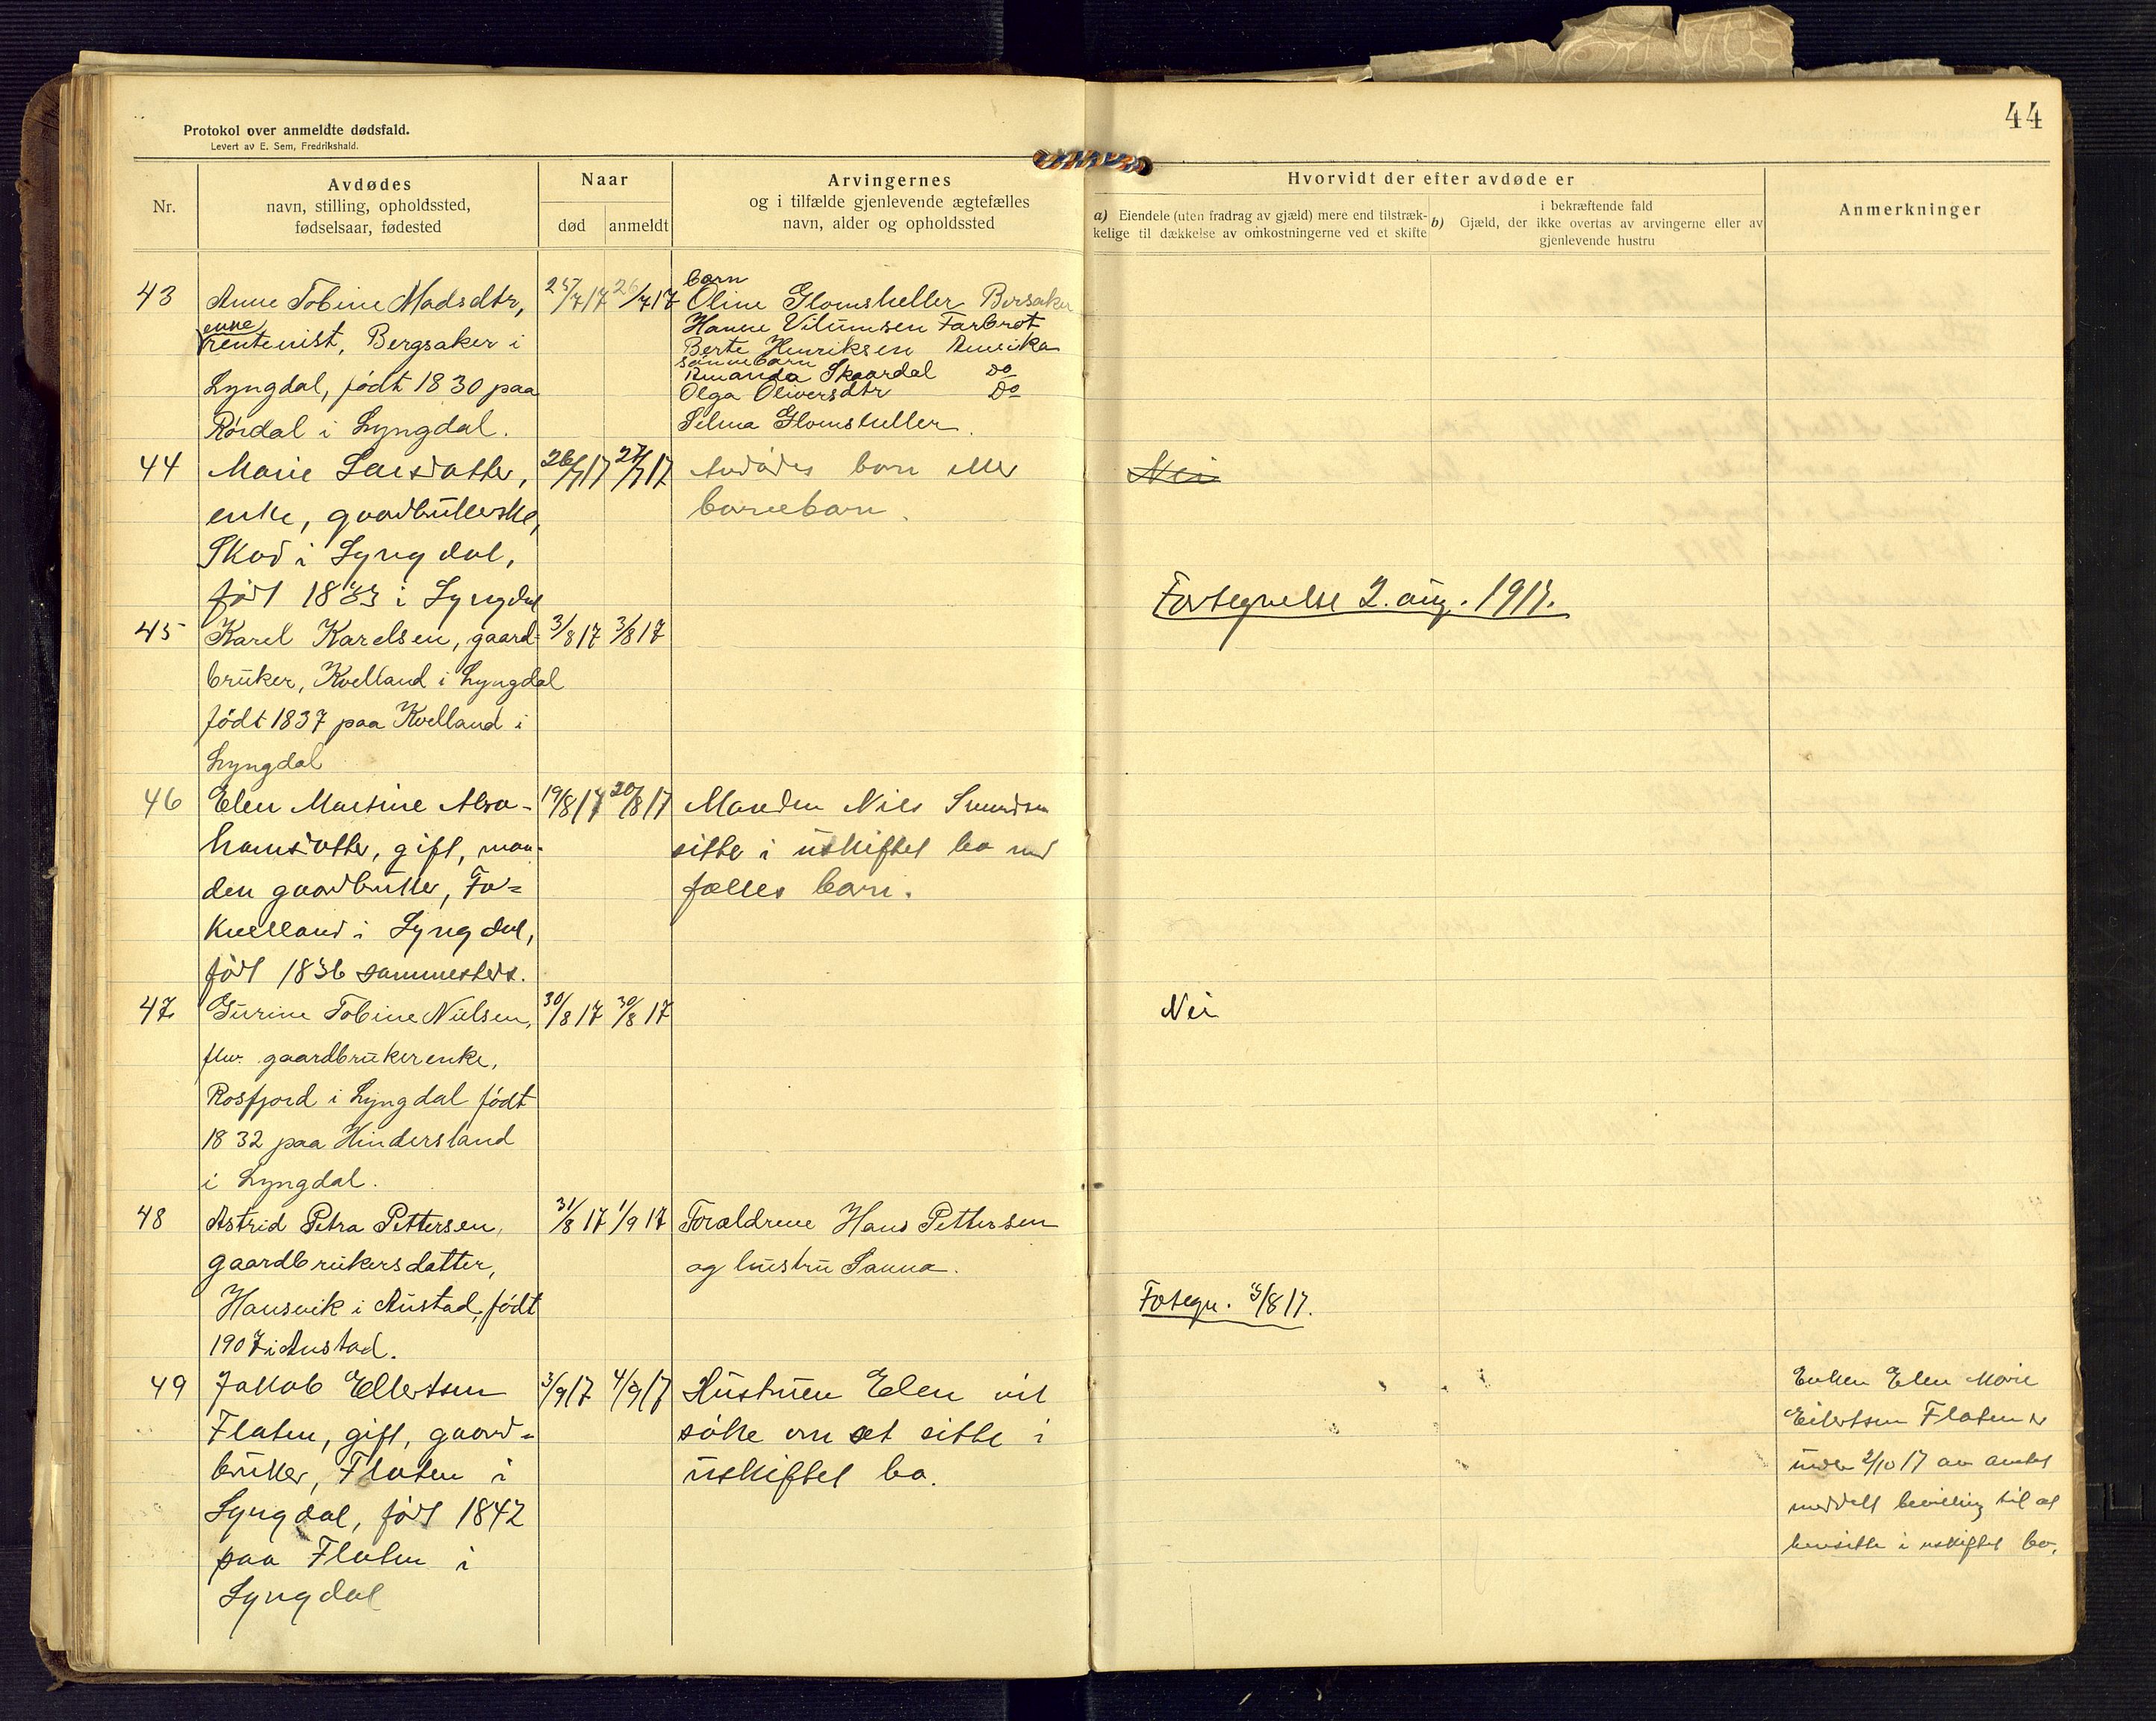 44
Protokol over anmeldte dødsfald.
Levert av E. Sem, Fredrikshald.
Nr.
Avdødes
navn, stilling, opholdssted,
fødselsaar, fødested
Naar
død
anmeldt
Arvingernes
og i tilfælde gjenlevende ægtefælles
navn, alder og opholdssted
Hvorvidt der efter avdøde er
a) Eiendele (uten fradrag av gjæld) mere end tilstræk-
kelige til dækkelse av omkostningerne ved et skifte
i bekræftende fald
b) Gjæld, der ikke overtas av arvingerne eller av
gjenlevende hustru
Anmerkninger
43
Anne Tobine Madsdtr,
enke
rentenist, Bergsaker i
Lyngdal, født 1830 paa
Rørdal i Lyngdal.
25/7 17
26/7 17
børn
Oline Glomsheller Bersaker
Hanne Vilumsen Farbrot
Berte Henriksen Amerika
sønnebarn
Amanda Skaardal Do
Olga Oliversdtr Do
Selma Glomsheller.
44
Marie Larsdatter,
enke, gaardbrukerske,
Skod i Lyngdal,
født 1833 i Lyngdal
26/7 17
27/7 17
Avdødes barn eller
barnebarn.
Nei
Fortegnelse 2. aug. 1917.
45
Karel Karelsen, gaard-
bruker, Kvelland i Lyngdal
født 1837 paa Kvelland i
Lyngdal
3/8 17
3/8 17
46
Elen Martine Abra-
hamsdatter, gift, man-
den gaardbruker, Fo-
Kvelland i Lyngdal,
født 1836 sammesteds.
19/8 17
20/8 17
Manden Nils
sitte i uskiftet bo med
fælles barn.
47
Gurine Tobine Nilsen,
fhv. gaardbrukerenke,
Rosfjord i Lyngdal født
1832 paa Hindersland
i Lyngdal.
30/8 17
30/8 17
Nei
48
Astrid Petra Pettersen,
gaardbrukersdatter,
Hansvik i Austad, født
1907 i Austad.
31/8 17
1/9 17
Forældrene Hans Pettersen
og hustru Sanna.
Fotegn. 3/8 17.
49
Jakob Ellertsen
Flaten, gift, gaard-
bruker, Flaten i
Lyngdal, født 1842
paa Flaten i
Lyngdal
3/9 17
4/9 17
Hustruen Elen vil
søke om at sitte i
uskiftet bo.
Enken Elen Marie
Eilertsen Flaten er
under 2/10 17 av amtet
meddelt bevilling til at
hensitte i uskiftet bo.